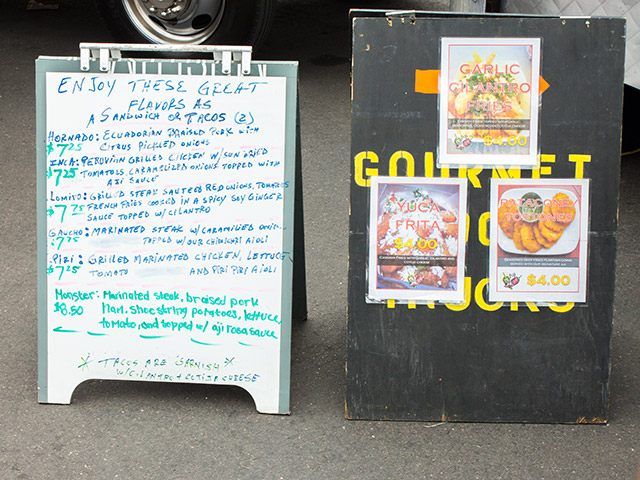 ENJOY THESE GREAT
FLAVORS AS
A SANDWICH OR TACOS (2)
HORNADO: ECUADORIAN BRAISED PORK WITH
$7.25 CITRUS PICKLED ONIONS
INCA: PERUVIAN GRILLED CHICKEN W/SUN DRIED
$7.25 TOMATOES, CARAMELIZED ONIONS TOPPED WITH
AJI SAUCE
LOMITO: GRILLED STEAK SAUTEED RED ONIONS, TOMATOES
$7.25 FRENCH FRIES COOKED IN A SPICY SOY GINGER
SAUCE TOPPED W/ CILANTRO
GAUCHO: MARINATED STEAK W/ CARAMELIZED ONION
7.25 TOPPED W/ OUR CHIMICHURRI AIOLI
PIRI: GRILLED MARINATED CHICKEN, LETTUCE
$7.25 TOMATO AND PIRI PIRI AIOLI
Monster: Marinated steak, braised pork
$8.50 Ham, shoestring potatoes, lettuce
tomato, and topped w/ aji rosa sauce
* TACOS ARE GARNISH *
W/ CILANTRO + COTIJA CHEESE
GOURMET
TRUCKS
GARLIC
CILANTRO
FRIES
$4.00
YUCA
FRITA
$4.00
PATACONES
TOSTONES
$4.00